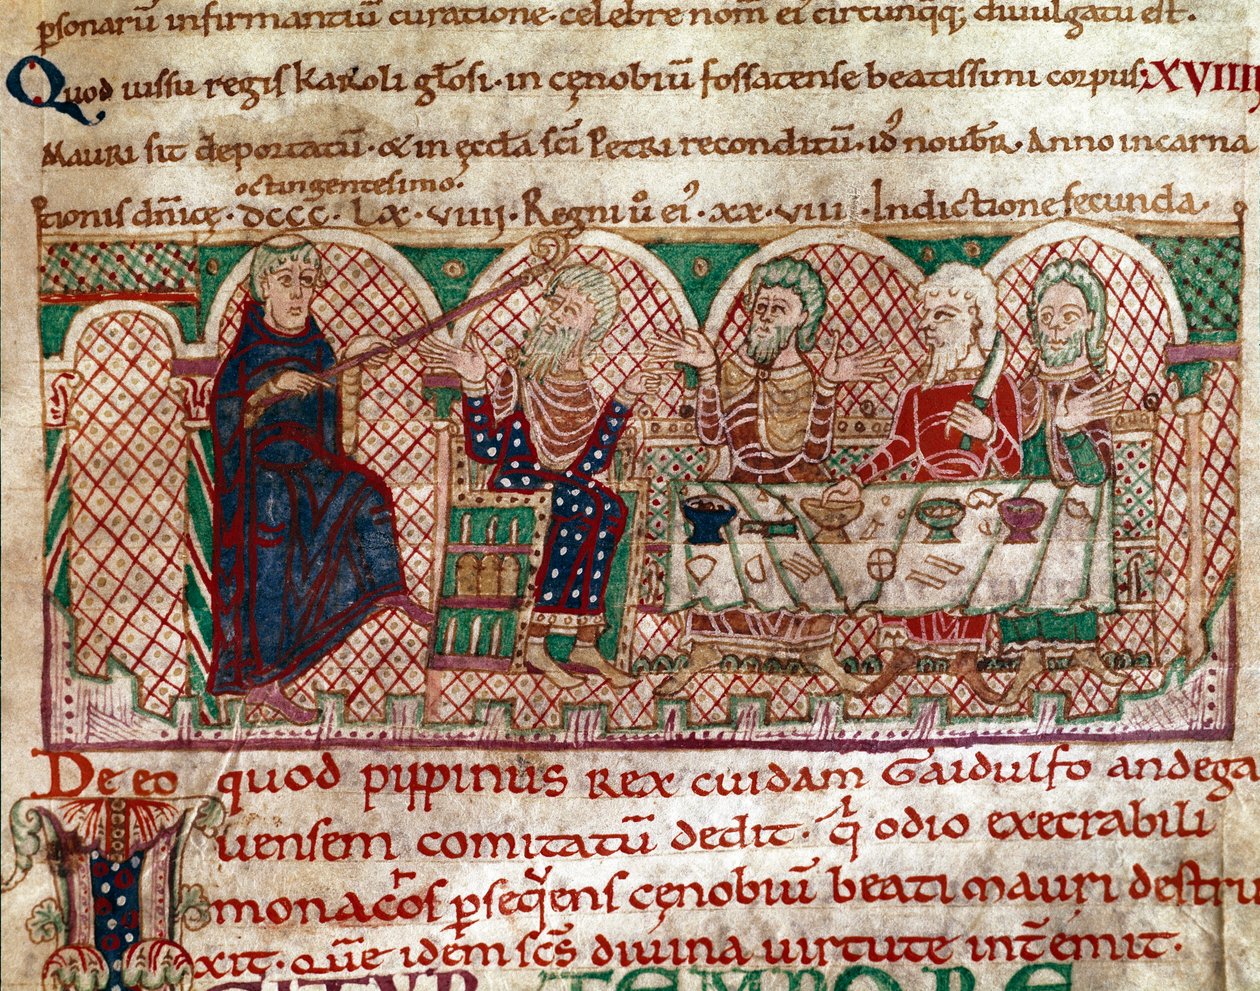 psonarū infirmantiū curatione· celebre nom̄ ei circunq̄q; diuulgatū est.
Quod iussu regis karoli gl̄osi· in cęnobiū fossatense beatissimi corpus XVIIII
Mauri sit deportatū· & in ęccl̄a sc̄i Petri reconditū· id noubr̄· Anno incarna
octingentesimo·
tionis dn̄icę· dccc· Lx· viiii· Regni ū ei xx·viiii· Indictione secunda·
De eo quod pippinus rex cuidam Gaidulfo andega
uensem comitatū dedit· q̄ odio execrabili
monachos psequens cęnobiū beati mauri destru
xit· quē idem sc̄s diuina uirtute intēmit·
GITUR TEMPORE